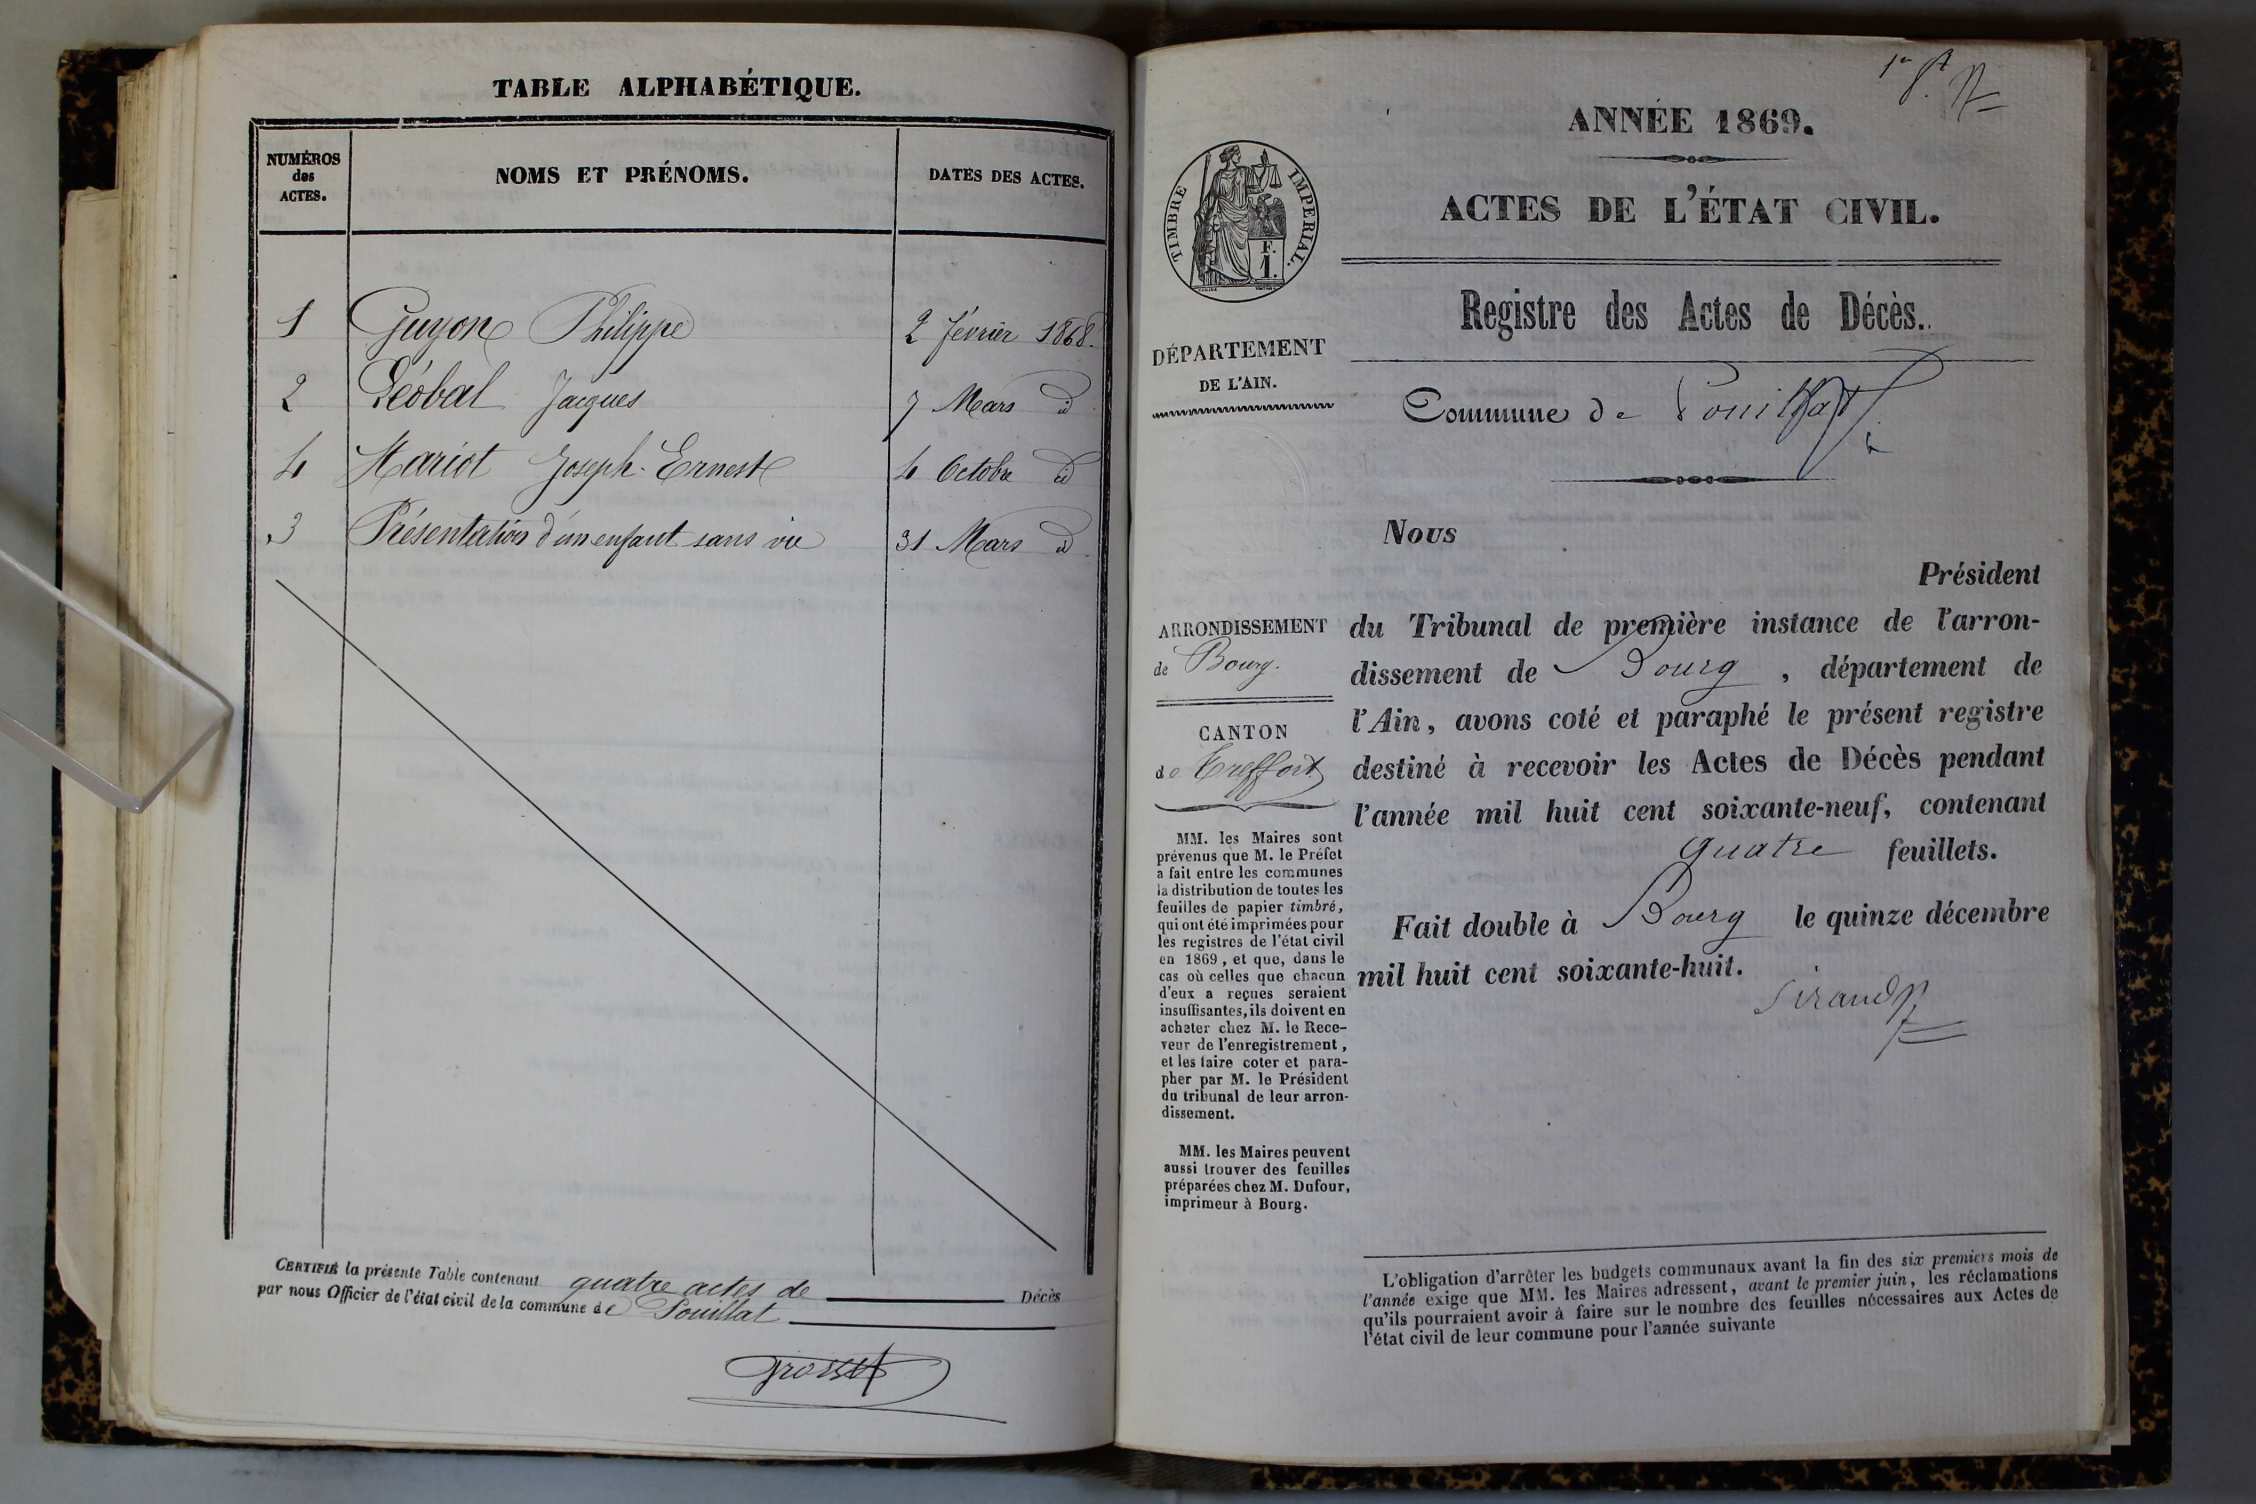 TABLE ALPHABÉTIQUE.
NUMÉROS
des
ACTES.
NOMS ET PRÉNOMS.
DATES DES ACTES.
1 Guyon Philippe 2 février 1868.
2 Léobal Jacques 7 Mars id
4 Mariot Joseph-Ernest 4 Octobre id
3 Présentation d'un enfant sans vie 31 Mars id
CERTIFIÉ la présente Table contenant quatre actes de Décès
par nous Officier de l'état civil de la commune de Pouillat
Grosset
ANNÉE 1869.
ACTES DE L'ÉTAT CIVIL.
Registre des Actes de Décès.
Commune de Pouillat
TIMBRE IMPERIAL.
F.
1.
DÉPARTEMENT
DE L'AIN.
ARRONDISSEMENT
de Bourg.
CANTON
de Treffort
MM. les Maires sont
prévenus que M. le Préfet
a fait entre les communes
la distribution de toutes les
feuilles de papier timbré,
qui ont été imprimées pour
les registres de l'état civil
en 1869, et que, dans le
cas où celles que chacun
d'eux a reçues seraient
insuffisantes, ils doivent en
acheter chez M. le Rece-
veur de l'enregistrement,
et les faire coter et para-
pher par M. le Président
du tribunal de leur arron-
dissement.
MM. les Maires peuvent
aussi trouver des feuilles
préparées chez M. Dufour,
imprimeur à Bourg.
Nous
Président
du Tribunal de première instance de l'arron-
dissement de Bourg, département de
l'Ain, avons coté et paraphé le présent registre
destiné à recevoir les Actes de Décès pendant
l'année mil huit cent soixante-neuf, contenant
quatre feuillets.
Fait double à Bourg le quinze décembre
mil huit cent soixante-huit.
Sirand
L'obligation d'arrêter les budgets communaux avant la fin des six premiers mois de
l'année exige que MM. les Maires adressent, avant le premier juin, les réclamations
qu'ils pourraient avoir à faire sur le nombre des feuilles nécessaires aux Actes de
l'état civil de leur commune pour l'année suivante